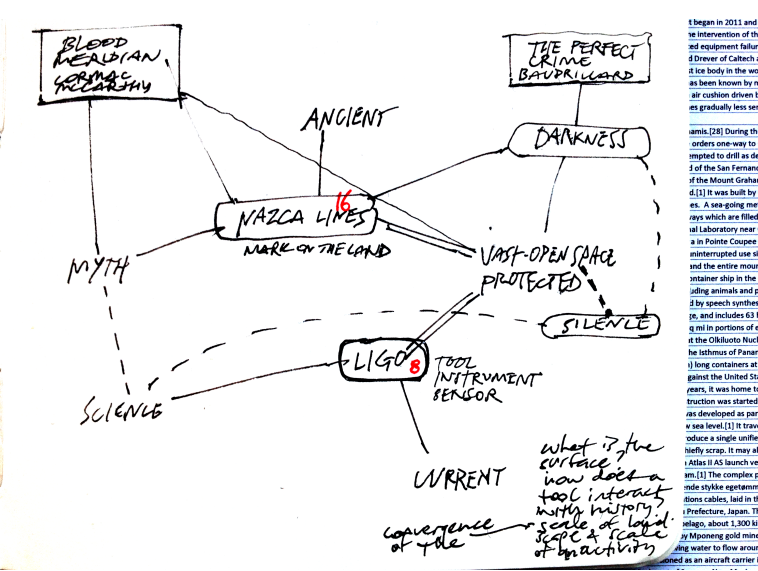 BLOOD
MERIDIAN
CORMAC
MCCARTHY
THE PERFECT
CRIME
BAUDRILLARD
ANCIENT
DARKNESS
16
NAZCA LINES
MARK ON THE LAND
MYTH
VAST-OPEN SPACE
PROTECTED
SILENCE
LIGO
8
TOOL
INSTRUMENT
SENSOR
SCIENCE
CURRENT
what is the
surface?
how does a
tool interact
with history?
convergence
of
scale of land
scape & scale
of an activity
t began in 2011 and
he intervention of th
ed equipment failur
d Drever of Caltech a
st ice body in the wo
as been known by n
air cushion driven b
nes gradually less ser
namis.[28] During the
orders one-way to
empted to drill as de
d of the San Fernand
of the Mount Graha
d.[1] It was built by
es. A sea-going me
ways which are filled
nal Laboratory near
a in Pointe Coupee
uninterrupted use si
and the entire moun
ontainer ship in the
uding animals and p
d by speech synthes
ge, and includes 63 l
q mi in portions of e
t the Olkiluoto Nucl
he Isthmus of Panar
) long containers at
gainst the United Sta
years, it was home to
truction was started
was developed as par
w sea level.[1] It trav
roduce a single unifie
hiefly scrap. It may al
Atlas II AS launch ve
am.[1] The complex p
ende stykke egetømm
tions cables, laid in th
Prefecture, Japan. Th
pelago, about 1,300 ki
by Mponeng gold mine
ving water to flow aroun
oned as an aircraft carrier i